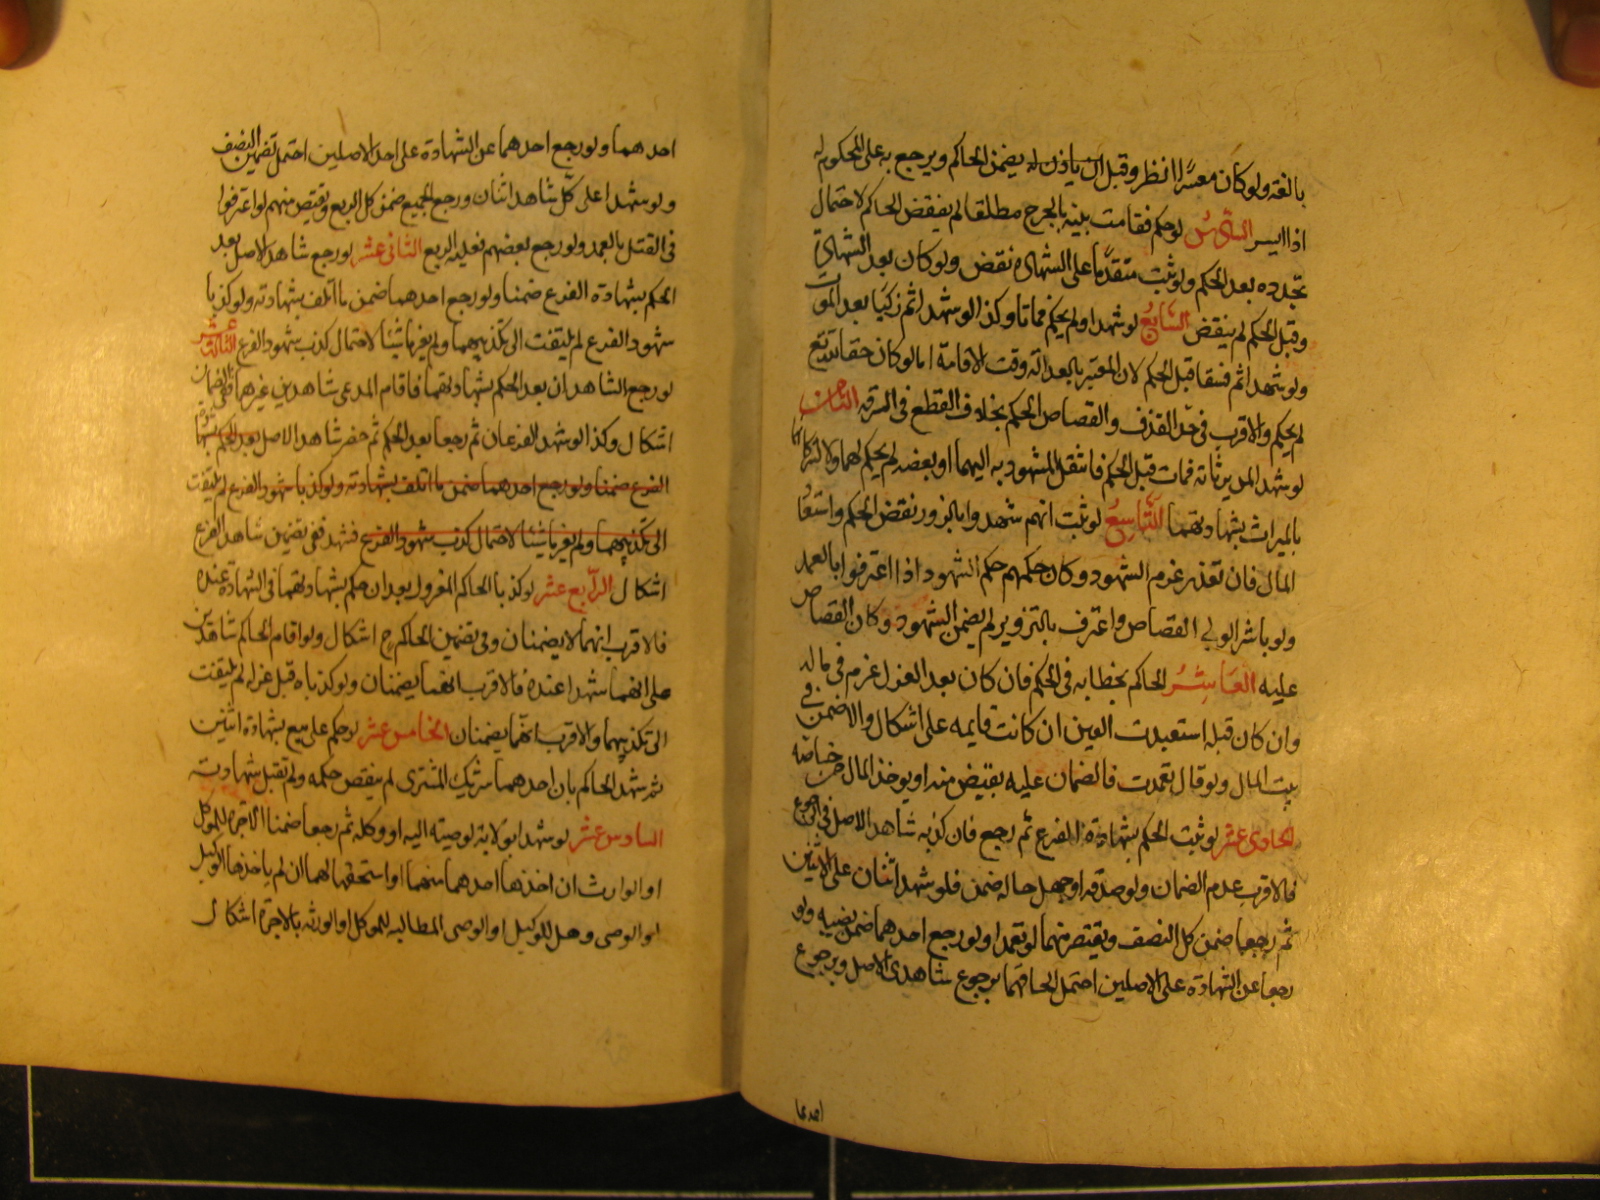 بالغة ولو كان معسرا انظر وقبل ان ياذن له يضمن الحاكم ويرجع به على المحكوم له
اذا ايسر السادس لو حكم فقامت بينة بالجرح مطلقا لم ينقض الحاكم لاحتمال
تجدده بعد الحكم ولو ثبت متقدما على الشهادة نقض ولو كان بعد الشهادة
وقبل الحكم لم ينقض السابع لو شهدا ولم يحكم فماتا وكذا لو شهدا ثم زكيا بعد الموت
ولو شهدا ثم فسقا قبل الحكم لان المعتبر بالعدالة وقت الاقامة اما لو كان حقا لله تع
لم يحكم والاقرب في حد القذف والقصاص الحكم بخلاف القطع في السرقة الثامن
لو شهدا لمن يرثانه فمات قبل الحكم فانتقل المشهود به اليهما او بعضه لم يحكم لهما ولا لشركائهما
بالميراث بشهادتهما التاسع لو ثبت انهم شهدوا بالزور نقض الحكم واستعيد
المال فان تعذر غرم الشهود وكان حكمهم حكم الشهود اذا اعترفوا بالعمد
ولو باشر الولي القصاص واعترف بالتزوير لم يضمن الشهود وكان القصاص
عليه العاشر الحاكم بخطابه في الحكم فان كان بعد العزل غرم في ماله
وان كان قبله استعيدت العين ان كانت قايمه على اشكال والا ضمن في
بيت المال ولو قال تعمدت فالضمان عليه يقتص منه او يوخذ المال من خاصه
الحادي عشر لو ثبت الحكم بشهادة الفرع ثم رجع فان كذبه شاهد الاصل في الرجوع
فالاقرب عدم الضمان ولو صدقه او جهل حاله ضمن فلو شهد اثنان على الاثنين
ثم رجعا ضمن كل النصف ويقتص منهما لو تعمدا ولو رجع احدهما ضمن نصيبه ولو
رجعا عن الشهادة على الاصلين احتمل الحاقهما برجوع شاهدي الاصل وبرجوع
احدهما
احدهما ولو رجع احدهما عن الشهادة على احد الاصلين احتمل تضمين النصف
ولو شهدا على كل شاهد اثنان ورجع الجميع ضمن كل الربع ويقتص منهم لو اعترفوا
في القتل بالعمد ولو رجع بعضهم فعليه الربع الثاني عشر لو رجع شاهد الاصل بعد
الحكم بشهادة الفرع ضمنا ولو رجع احدهما ضمن ما اتلف بشهادته ولو كذبا
شهود الفرع لم يلتفت الى تكذيبهما ولم يغرما شيئا لاحتمال كذب شهود الفرع الثالث عشر
لو رجع الشاهدان بعد الحكم بشهادتهما فاقام المدعي شاهدين غيرهما ففي الضمان
اشكال وكذا لو شهد الفرعان ثم رجعا بعد الحكم ثم حضر شاهد الاصل بعد الحكم بشهادة
الفرع ضمنا ولو رجع احدهما ضمن ما اتلف بشهادته ولو كذبا شهود الفرع لم يلتفت
الى تكذيبهما ولم يغرما شيئا لاحتمال كذب شهود الفرع فشهد ففي تضمين شاهد الفرع
اشكال الرابع عشر لو كذبا الحاكم المعزول بعد ان حكم بشهادتهما في الشهادة عنده
فالاقرب انهما لا يضمنان وفي تضمين الحاكم ح اشكال ولو اقام الحاكم شاهدين
على انهما شهدا عنده فالاقرب انهما يضمنان ولو كذباه قبل عزله لم يلتفت
الى تكذيبهما والاقرب انهما يضمنان الخامس عشر لو حكم على بيع بشهادة اثنين
ثم شهد الحاكم بان احدهما شريك المشتري لم ينقص حكمه ولم تقبل شهادته
السادس عشر لو شهدا بولاية لوصيته اليه او وكله ثم رجعا ضمنا الاجرة للموكل
او الوارث ان اخذها احدهما منهما او استحقها لهما ان لم ياخذها الوكيل
او الوصي وهل للوكيل او الوصي المطالبه للموكل او الورثه بالاجرة اشكال